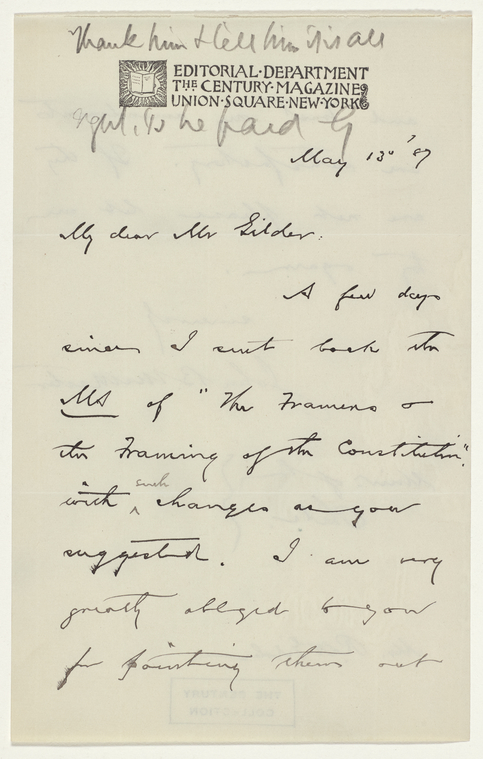 Thank him & tell him it is all
EDITORIAL·DEPARTMENT
THE CENTURY·MAGAZINE
UNION·SQUARE·NEW·YORK
right. To be paid G
May 13 '87
My dear Mr Gilder:
A few days
since I sent back the
MS of "The Framers &
the Framing of the Constitution".
with such changes as you
suggested. I am very
greatly obliged to you
for pointing them out
THE CENTURY
COLLECTION